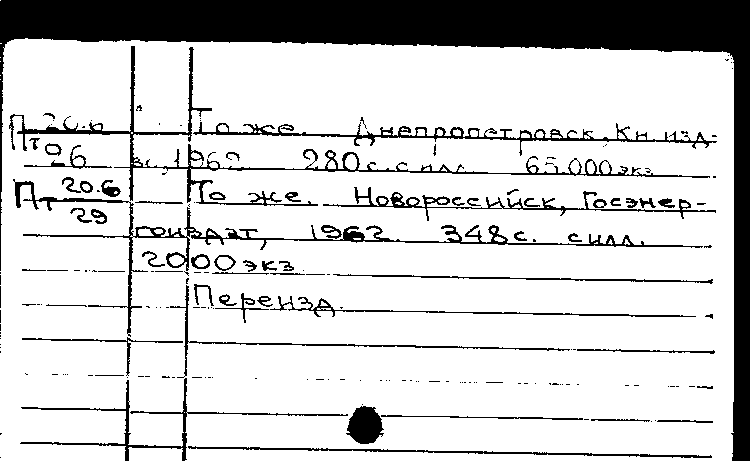 Пт 20.6 То же. Днепропетровск, Кн. изд-
26 во, 1962 280 с. с илл. 65.000 экз
Пт 20.6 То же. Новороссийск, Госэнер-
29 гоиздат, 1962. 348 с. с илл.
2000 экз
Переизд.